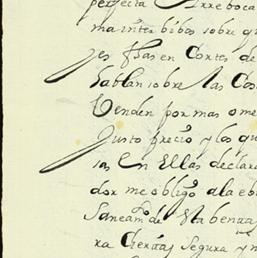 perfecta Irreboca
mainter bibos sobre qu
jes fhas en Cortes de
hablan sobre las Cos
Venden por mas o me
Justo precio y los qu
ias En Ellas declara
dor me obligo a la eb
Saneamᵒ de Sta benta
ra Cierta Segura y